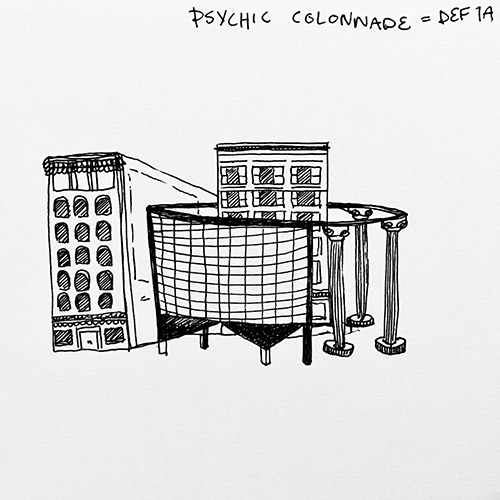 PSYCHIC COLONNADE = DEF 1A